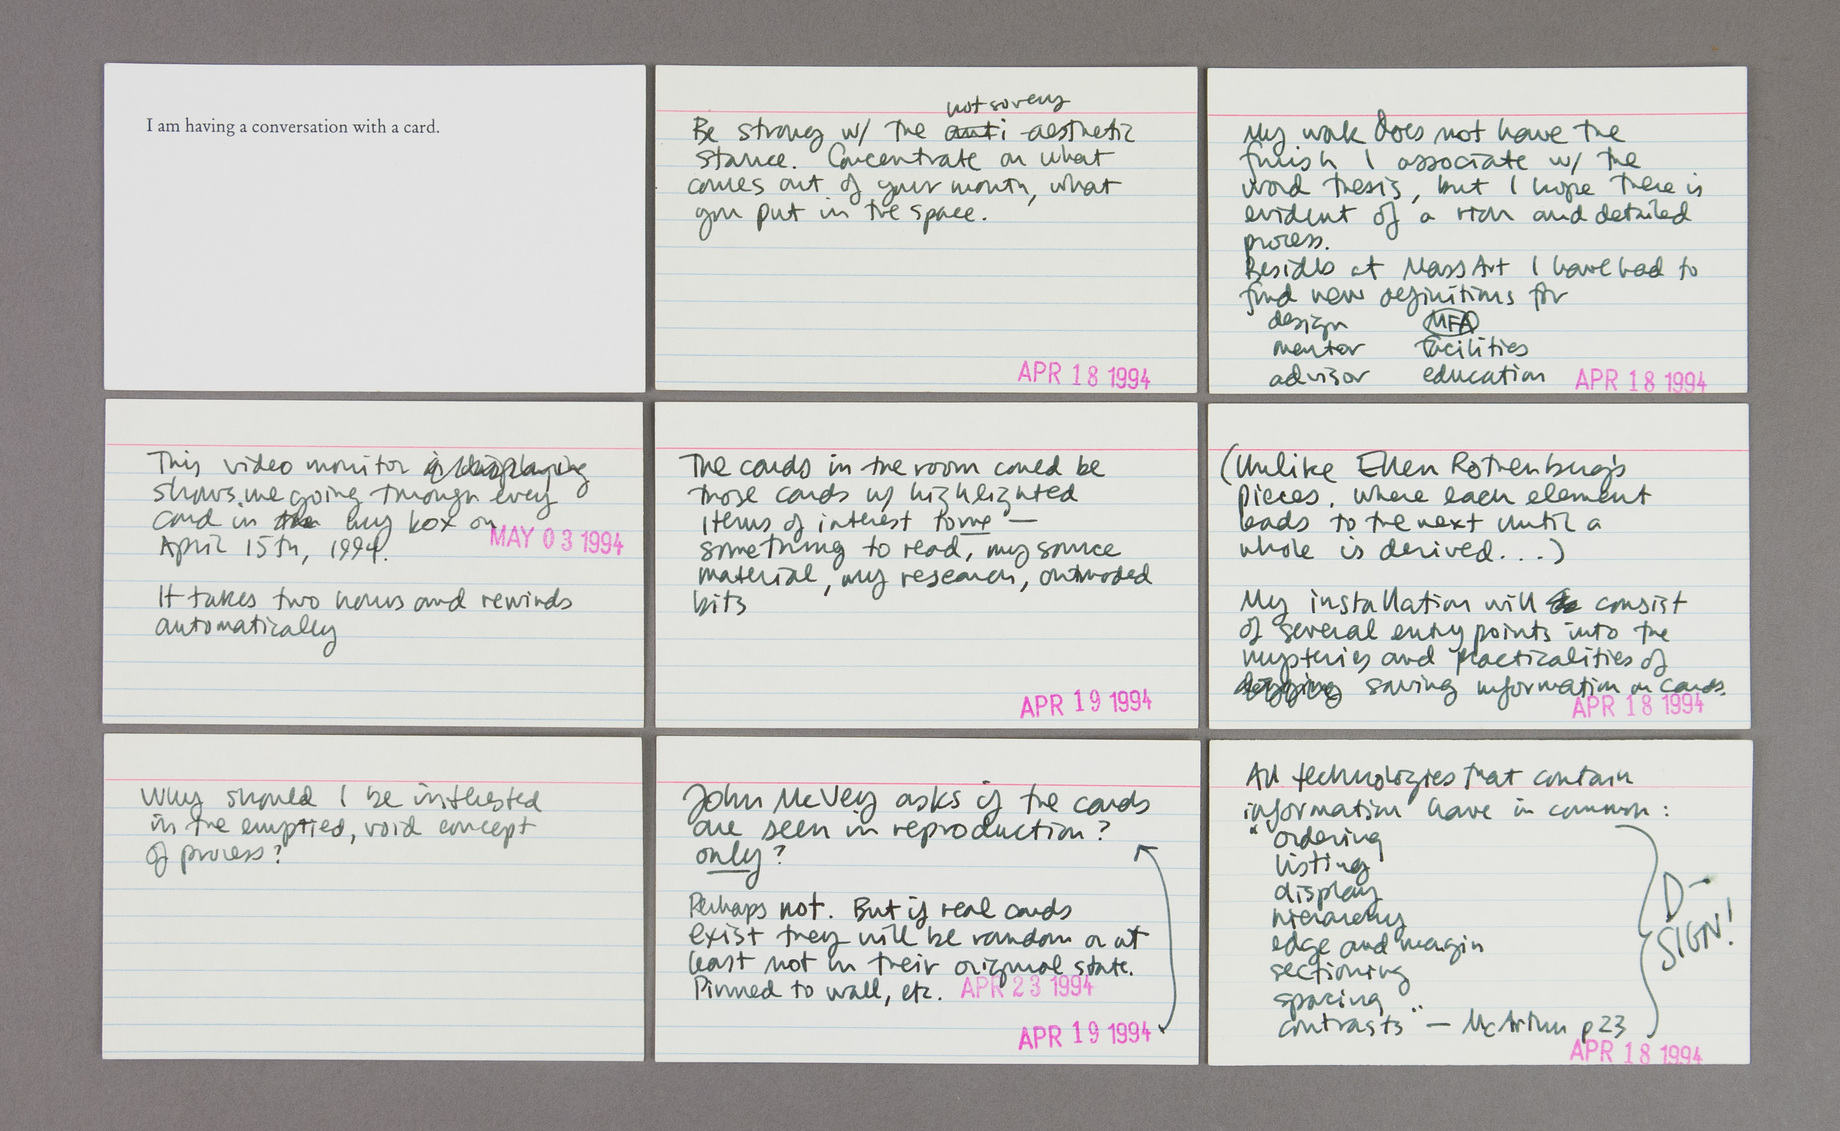 I am having a conversation with a card.
not so very
Be strong w/ the anti-aesthetic
stance. Concentrate on what
comes out of your mouth, what
you put in the space.
APR 18 1994
My work does not have the
finish I associate w/ the
word thesis, but I hope there is
evident of a rich and detailed
process.
Besides at MassArt I have had to
find new definitions for
design MFA
mentor facilities
advisor education APR 18 1994
This video monitor is displaying
shows me going through every
card in the my box on
MAY 03 1994
April 15th, 1994.
It takes two hours and rewinds
automatically
The cards in the room could be
those cards w/ highlighted
items of interest to me —
something to read, my source
material, my research, outmoded
bits
APR 19 1994
(Unlike Ellen Rothenburg's
pieces, where each element
leads to the next until a
whole is derived...)
My installation will consist
of several entry points into the
mysteries and practicalities of
saving information on cards.
APR 18 1994
Why should I be interested
in the emptied, void concept
of process?
John McVey asks if the cards
are seen in reproduction?
only?
Perhaps not. But if real cards
exist they will be random or at
least not in their original state.
Pinned to wall, etc. APR 23 1994
APR 19 1994
All technologies that contain
information have in common:
"ordering
listing
display
hierarchy
edge and margin
sectioning
spacing
contrasts" — McArthur p23
D—
SIGN!
APR 18 1994